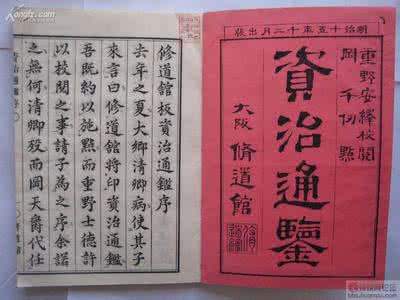 明治十五年十二月出版
重野安繹校閲
岡千仞點
資治通鑑
大阪 修道館
修道館板資治通鑑序
去年之夏大鄉清卿病使其子
來言曰修道館將印資治通鑑
吾既約以施點而重野士德許
以校閱之事請子為之序余諾
之無何清卿歿而岡天爵代任
資治通鑑序